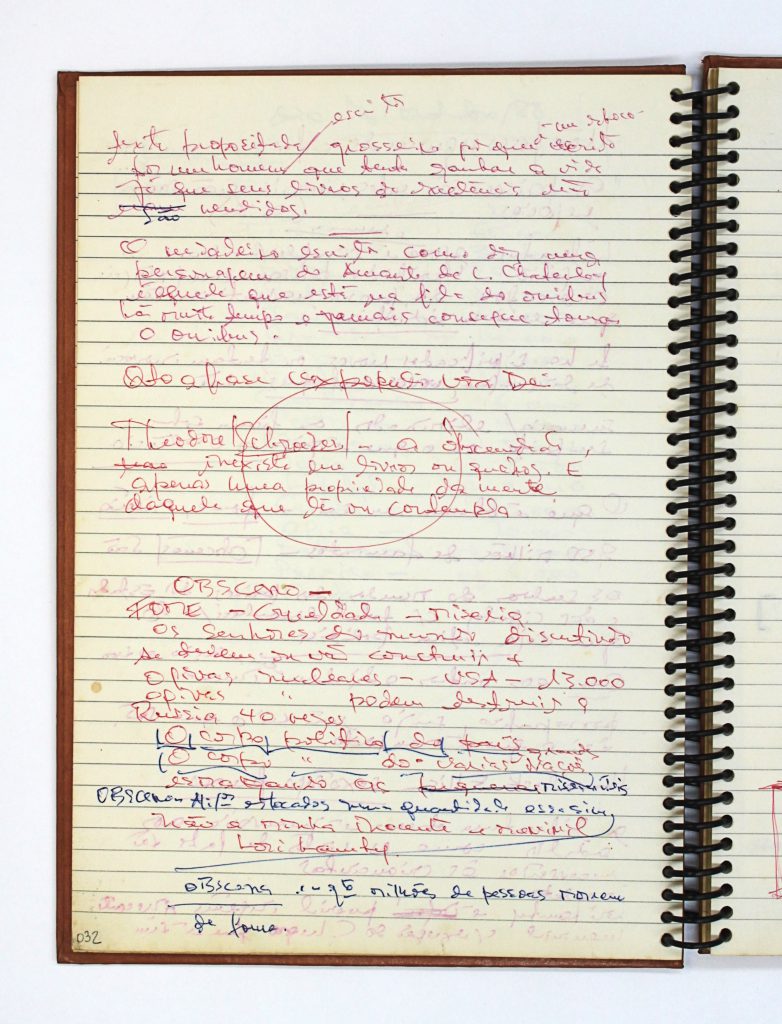 escrito
texto propositado grosseiro pq quem escrito
por um homem que tenta ganhar a vida
já que seus livros de excelência não
são vendidos.
O verdadeiro escritor como diz uma
personagem do Amante de L. Chaterley
é aquele que está na fila do ônibus
há muito tempo e jamais consegue tomar
o ônibus.
a frase
Theodore Schroeder - a obscenidade
inexiste em livros ou quadros. É
apenas uma propriedade da mente
daquele que lê ou contempla
OBSCENO -
FOME - Crueldade - miséria
Os Senhores do mundo discutindo
se devem ou não construir +
ogivas nucleares - USA - 13.000
ogivas " podem destruir a
Russia 40 vezes
(O corpo político do país
(O corpo " das várias nações
as
OBSCENO estocados numa quantidade
Não a minha inocente e
Lori Lamby.
OBSCENA milhões de pessoas morrem
de fome.
032